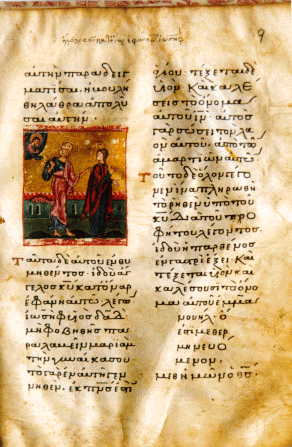 αὐτὴν παραδειγ
ματίσαι, ἠβουλή
θη λάθρα ἀπολῦ
σαι αὐτήν.
Ταῦτα δὲ αὐτοῦ ἐνθυ
μηθέντος. ἰδοὺ ἄγ
γελος κυ κατ' ὄναρ
ἐφάνη αὐτῶ λέγων
ἰωσὴφ υἱὸς δαδ
μὴ φοβηθῆς πα
ραλαβεῖν μαριὰμ
τὴν γυναῖκα σου
τὸ γὰρ ἐν αὐτῆ γεν
νηθέν. ἐκ πνς ἐστὶν
ἁγίου. τέξεται δὲ
υἱόν. καὶ καλέ
σεις τὸ ὄνομα
αὐτοῦ ιν. αὐτὸς
γὰρ σώσει τὸν λα
ὸν αὐτοῦ. ἀπὸ τῶν
ἁμαρτιῶν αὐτῶν
Τοῦτο δὲ ὅλον γέγο
νεν ἵνα πληρωθῆ
τὸ ῥηθὲν ὑπὸ τοῦ
κυ διὰ τοῦ προ
φήτου λέγοντος
ἰδοὺ ἡ παρθένος
ἐν γαστρὶ ἕξει. καὶ
τέξεται υἱὸν καὶ
καλέσουσι τὸ ὄνο
μα αὐτοῦ ἐμμα
νουήλ. ὅ
ἐστι μεθερ
μηνευό
μενον.
μεθ' ἡμῶν ὁ θς.